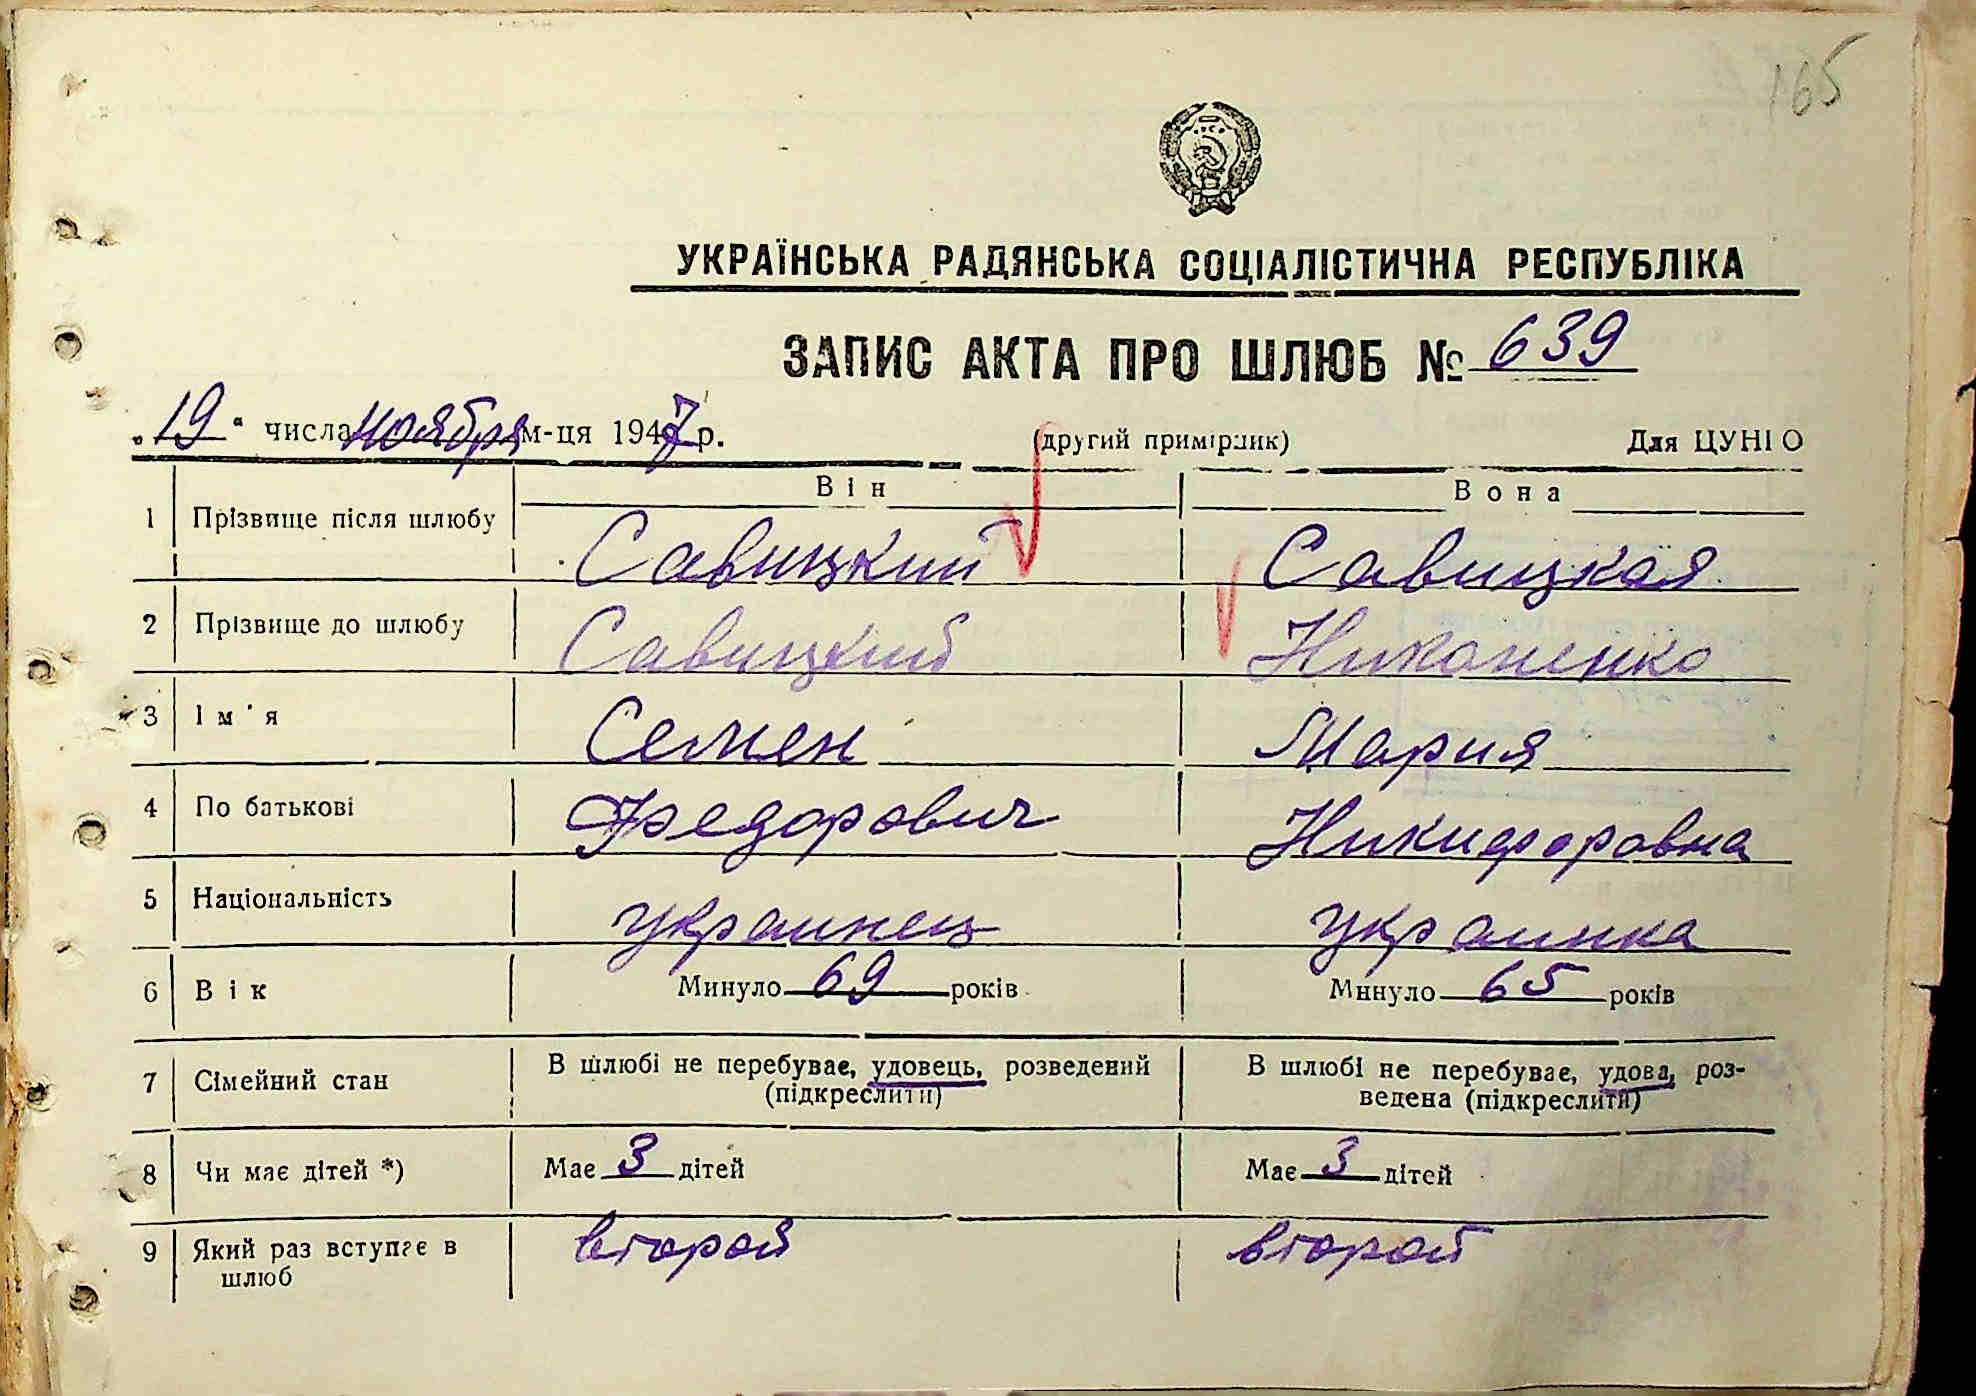 165
УКРАЇНСЬКА РАДЯНСЬКА СОЦІАЛІСТИЧНА РЕСПУБЛІКА
ЗАПИС АКТА ПРО ШЛЮБ № 639
„19" числа ноября м-ця 1947 р. (другий примірник) Для ЦУНГО
Він Вона
1 Прізвище після шлюбу Савицкий Савицкая
2 Прізвище до шлюбу Савицкий Никоненко
3 Ім'я Семен Мария
4 По батькові Федорович Никифоровна
5 Національність украинец украинка
6 Вік Минуло 69 років Минуло 65 років
7 Сімейний стан В шлюбі не перебуває, удовець, розведений В шлюбі не перебуває, удова, роз-
(підкреслити) ведена (підкреслити)
8 Чи має дітей *) Має 3 дітей Має 3 дітей
9 Який раз вступає в второй второй
шлюб